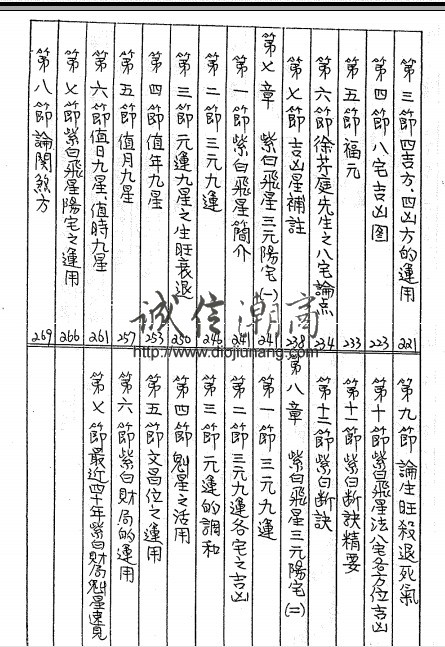 第三節 四吉方、四凶方的運用 221
第四節 八宅吉凶图 223
第五節 福元 233
第六節 徐芹庭先生之八宅論点 234
第七節 吉凶星補註 238
第七章 紫白飛星三元陽宅(一) 241
第一節 紫白飛星簡介 241
第二節 三元九運 246
第三節 元運九星之生旺衰退 250
第四節 值年九星 253
第五節 值月九星 257
第六節 值日九星、值時九星 261
第七節 紫白飛星陽宅之運用 266
第八節 論関煞方 269
第九節 論生旺殺退死氣
第十節 紫白飛星法八宅各方位吉凶
第十一節 紫白断訣精要
第十二節 紫白断訣
第八章 紫白飛星三元陽宅(二)
第一節 三元九運
第二節 三元九運各宅之吉凶
第三節 元運的調和
第四節 魁星之活用
第五節 文昌位之運用
第六節 紫白財局的運用
第七節 最近四十年紫白財局魁星速見
誠信潮商
http://www.diojiunang.com